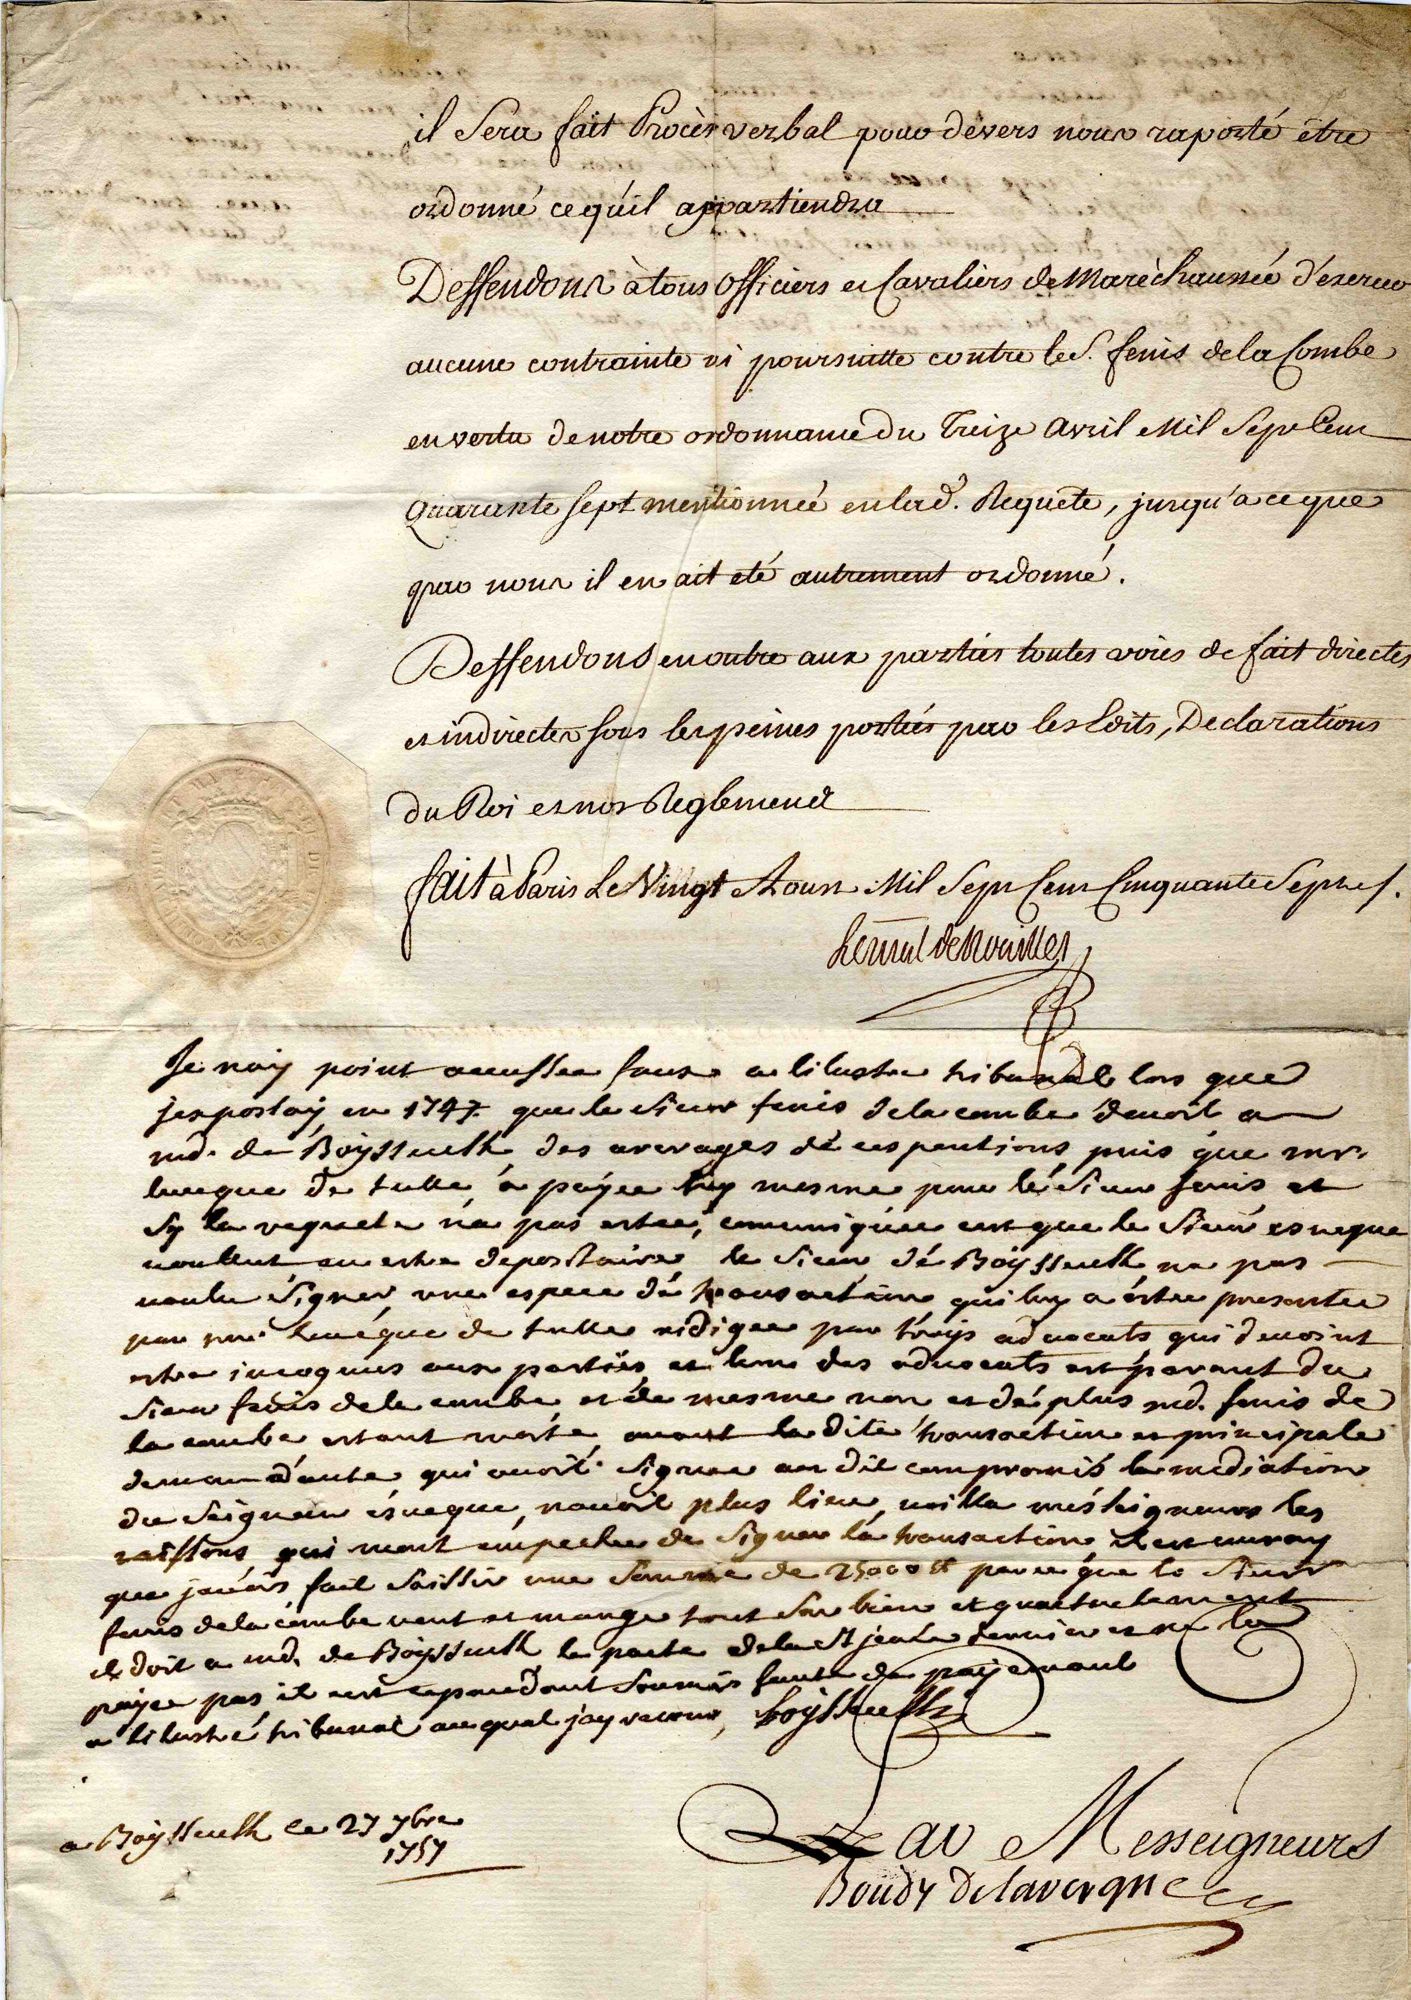 il Sera fait Procès verbal pour devers nous raporté être
ordonné ce qu'il appartiendra
Deffendons à tous officiers et Cavaliers de Maréchaussée d'exercer
aucune contrainte ni poursuitte contre le S. fenis de la Combe
en vertu de notre ordonnance du Treize Avril Mil Sept Cent
Quarante Sept mentionnée en lad. Requête, jusqu'a ce que
par nous il en ait eté autrement ordonné.
Deffendons en outre aux parties toutes voies de fait directes
et indirectes sous les peines portées par les Edits, Declarations
du Roi et nos Reglements
fait à Paris Le Vingt Aoust Mil Sept Cent Cinquante Sept
Le mal de Noailles
Je nay point accussee faux a lilustre tribunal lors que
jexposay en 1747 que le Sieur fenis de la combe devoit a
md. de Boysseulh des arerages de ces pentions puis que mr
leveque de tulle a payee luy mesme pour le Sieur fenis et
Sy la requete na pas estee comuniquee est que le Sieur esveque
voulut en estre depositaire le Sieur de Boysseulh na pas
voulu Signer une espece de transaction qui luy a estee presentee
par mr leveque de tulle redigee par troys advocats qui devoint
estre incognus aux parties et lun des advocats est parant du
Sieur fenis de la combe et de mesme non et de plus md. fenis de
la combe estant morte avant la dite transaction et principale
demandante qui avoit Signee un dit compromis la mediation
du Seigneur esveque navoit plus lieu voilla messeigneurs les
raissons qui mont empeche de Signer la transaction il est vray
que javois fait Saissir une Somme de 25000 tt parce que le Sieur
fenis de la combe vent et mange tout Son bien et quactuelement
il doit a md. de Boysseulh le pacte de la St jean dernier et ne le
paye pas il est cependant Soumis faute de payemant
a lilustre tribunal auquel jay recour, Boysseulh
a Boysseulh ce 27 7bre
1757
Messeigneurs
Boudy Delavergne